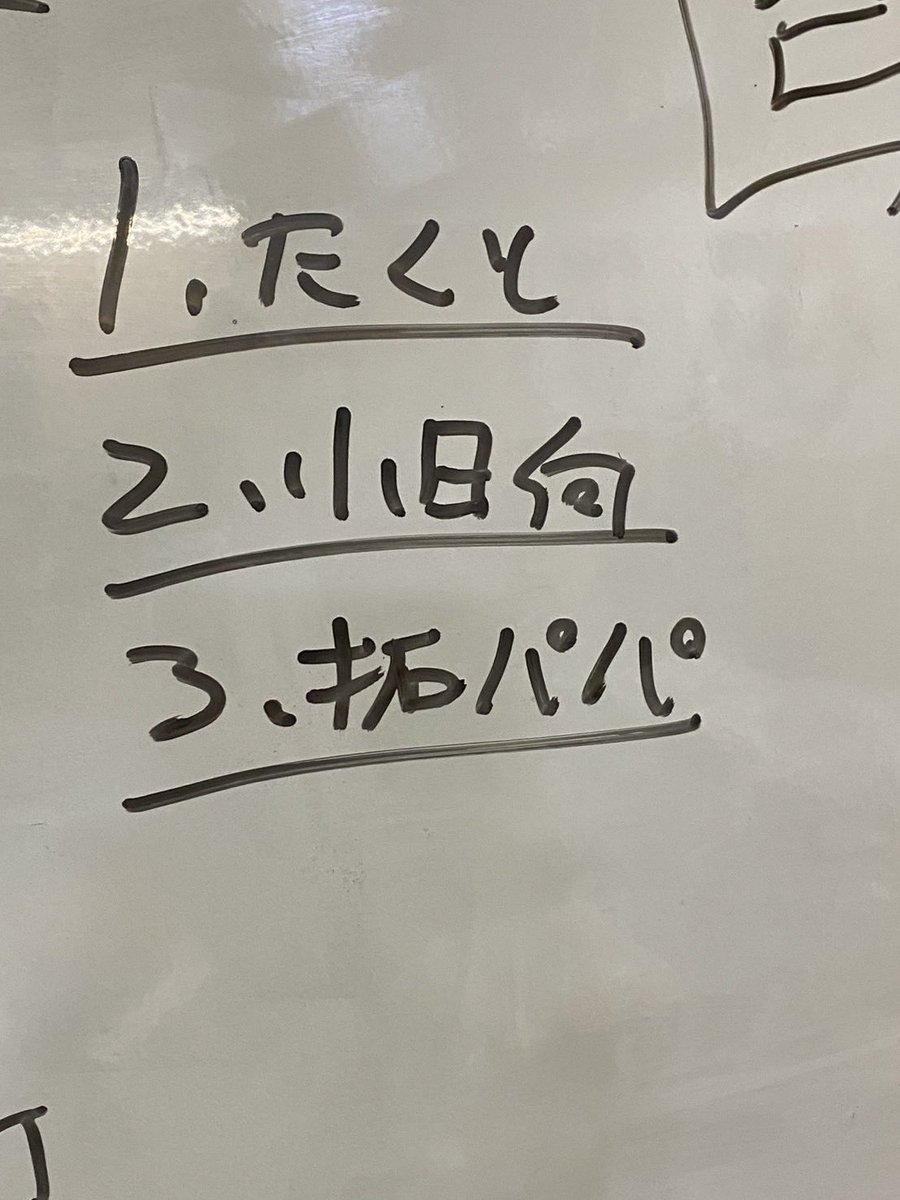 1.たくと
2.小日向
3.拓パパ